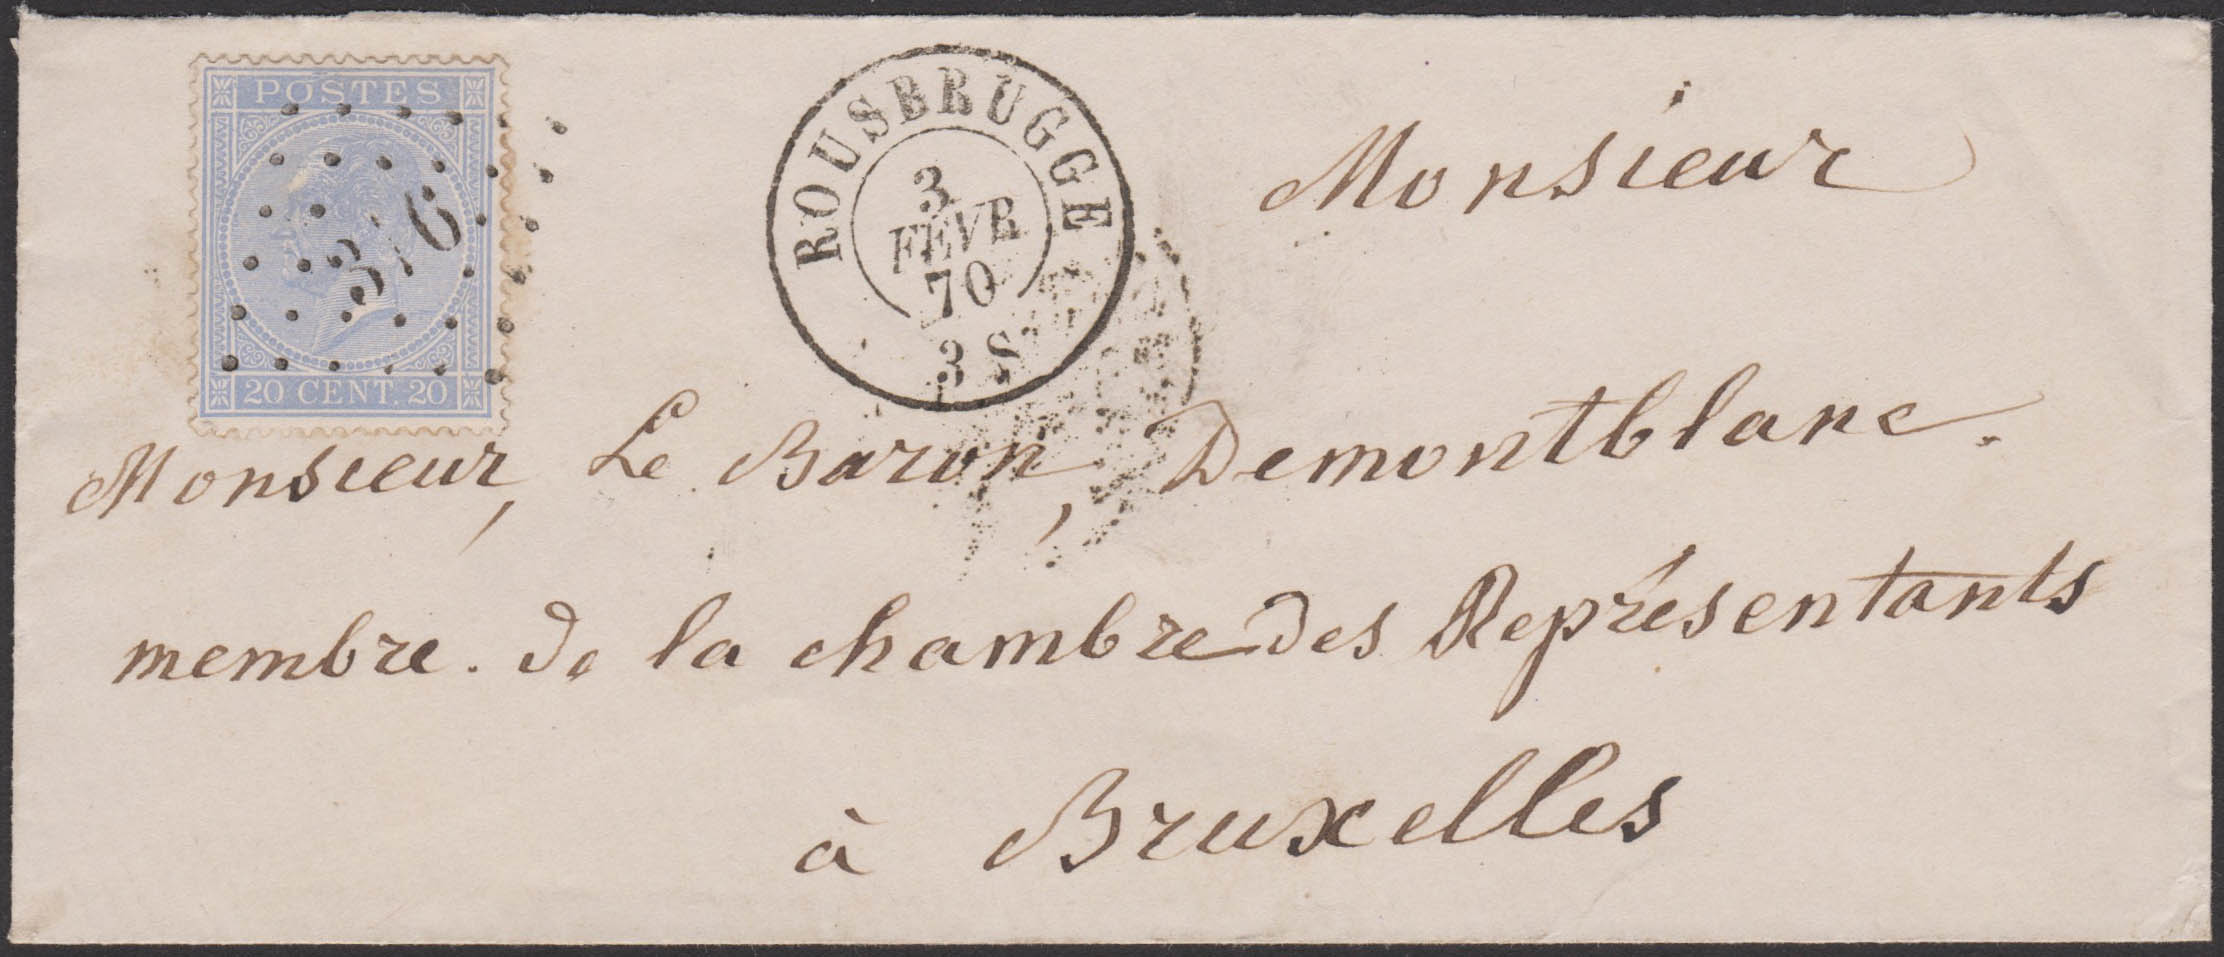 POSTES
316
20 CENT. 20
ROUSBRUGGE
3
FEVR
70
3 S
Monsieur
Monsieur, Le Baron, Demontblanc.
membre. de la chambre des Représentants
à Bruxelles